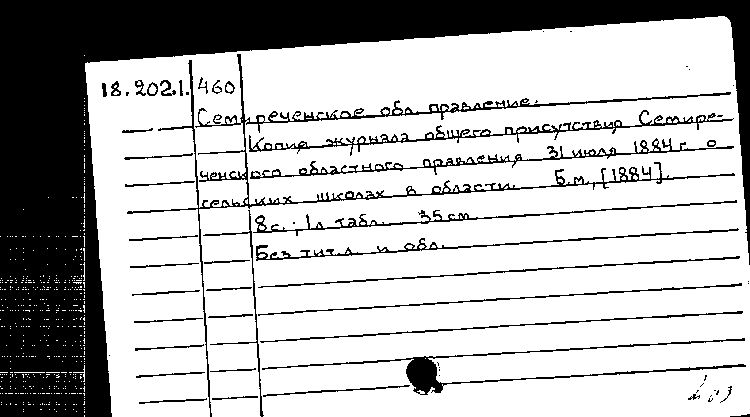 18.202.1. 460
Семиреченское обл. правление.
Копия журнала общего присутствия Семире-
ченского областного правления 31 июля 1884 г. о
сельских школах в области. Б.м., [1884].
8 с.; 1 л. табл. 35 см.
Без тит. л. и обл.